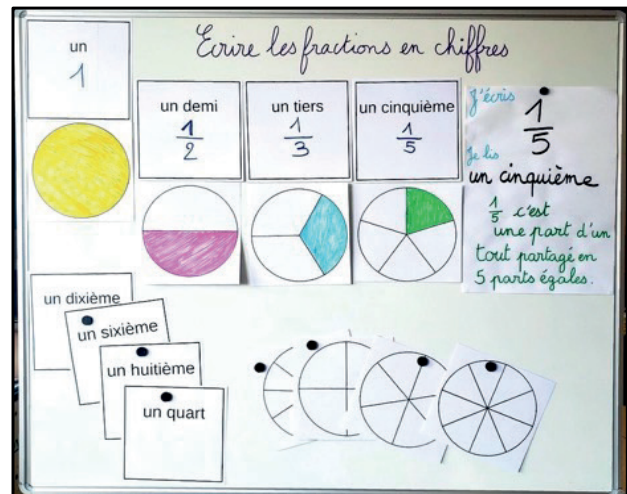 Ecrire les fractions en chiffres
un
1
un demi
1
2
un tiers
1
3
un cinquième
1
5
J'écris
1
5
Je lis
un cinquième
1
5 c'est
une part d'un
tout partagé en
5 parts égales.
un dixième
un sixième
un huitième
un quart